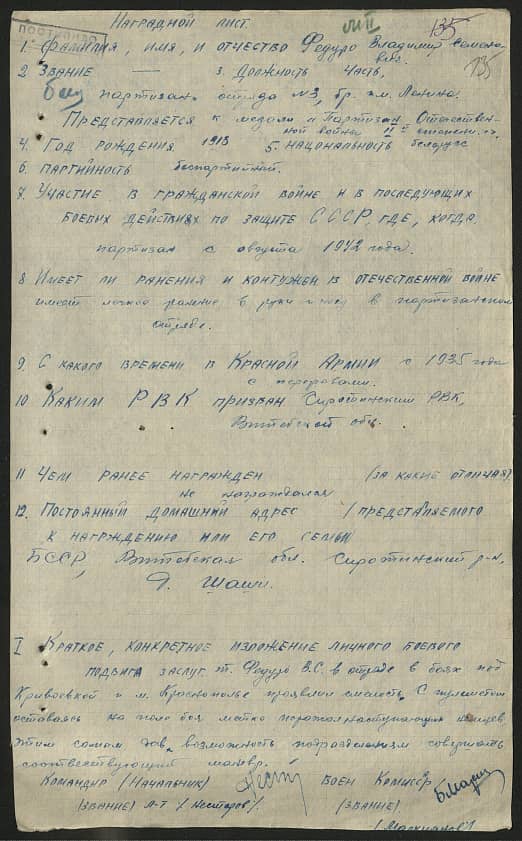 Наградной лист
135
135
1. Фамилия, имя, и отчество Федуро Владимир
2 Звание — 3. Должность Часть,
партизан отряда №3, бр. им. Ленина.
Представляется к медали "Партизан Отечествен-
ной войны II степени"
4. Год рождения 1918 5. Национальность белорус
6. Партийность беспартийный.
7. Участие в гражданской войне и в последующих
боевых действиях по защите СССР, где, когда.
партизан с августа 1942 года.
8 Имеет ли ранения и контужен в отечественной войне
имеет легкое ранение в руки и ногу в партизанском
отряде.
9. С какого времени в Красной Армии с 1935 года
с перерывами.
10 Каким РВК призван Сиротинский РВК,
Витебской обл.
11 Чем ранее награжден (за какие отличая)
не награждался
12. Постоянный домашний адрес /представляемого
к награждению или его семьи
БССР, Витебская обл. Сиротинский р-н,
д. Шашн.
I Краткое, конкретное изложение личного боевого
подвига заслуг т. Федуро В.С. в отряде в боях под
и м. Краснополье проявлял смелость. С пулеметом
оставаясь на поле боя метко поражал наступающих немцев,
этим самым дав возможность подразделениям совершать
соответствующий маневр.
Командир (Начальник) Воен Комиссар
(Звание) л-т / Нестеров/. (Звание)